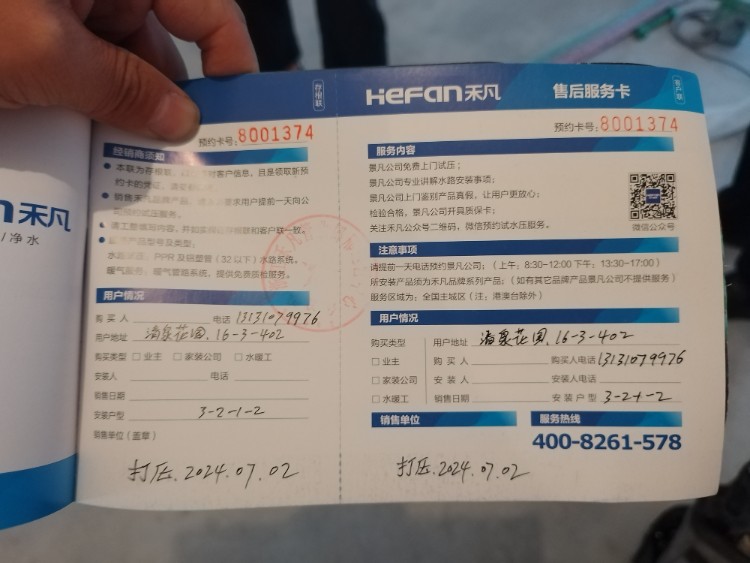 n禾凡
/净水
存根联
预约卡号:8001374
经销商须知
约卡的凭证,
● 销售禾凡品牌产品,
要求用户提前一天向公
试压服务。
产品型号及类型:
PPR及铝塑管(32以下)水路系统、
暖气管路系统,提供免费质检服务。
用户情况
购买人 电话 13131079976
用户地址 16-3-402
购买类型 □业主 □家装公司 □水暖工
安装人 电话
销售日期
安装户型 3-2-1-2
销售单位(盖章)
打压.2024.07.02
HeFan禾凡 售后服务卡
客户联
预约卡号:8001374
服务内容
景凡公司免费上门试压;
景凡公司专业讲解水路安装事项;
景凡公司上门鉴别产品真假,让用户更放心;
检验合格,景凡公司开具质保卡;
关注禾凡公众号二维码,微信预约试水压服务。
微信公众号
注意事项
请提前一天电话预约景凡公司:(上午:8:30-12:00 下午:13:30-17:00)
所安装产品须为禾凡品牌系列产品:(如有其它品牌产品景凡公司不提供服务)
服务区域为:全国主城区(注:港澳台除外)
用户情况
购买类型 用户地址 16-3-402
□业主 购买人 购买人电话 13131079976
□家装公司 安装人 安装人电话
□水暖工 销售日期 安装户型
销售单位 服务热线
400-8261-578
打压.2024.07.02